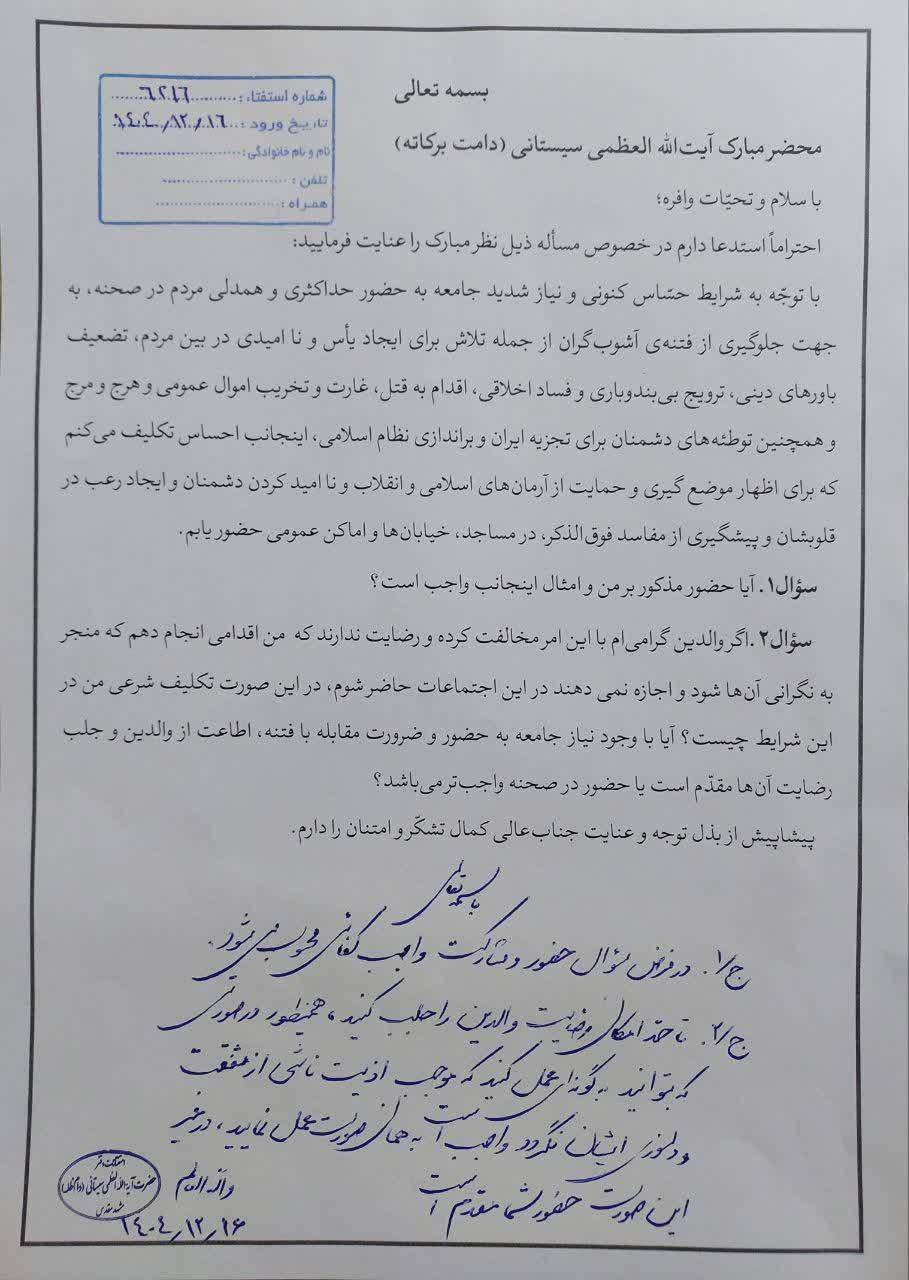 بسمه تعالی
شماره استفتاء : ............ ٦٢١٦ ............
تاریخ ورود : ... ١٤٠٤/١٢/١٦
نام و نام خانوادگی: ............................
تلفن : ............................
همراه : ............................
محضر مبارک آیت‌الله العظمی سیستانی (دامت برکاته)
با سلام و تحیّات وافره؛
احتراماً استدعا دارم در خصوص مسأله ذیل نظر مبارک را عنایت فرمایید:
با توجّه به شرایط حسّاس کنونی و نیاز شدید جامعه به حضور حداکثری و همدلی مردم در صحنه، به
جهت جلوگیری از فتنه‌ی آشوب‌گران از جمله تلاش برای ایجاد یأس و نا امیدی در بین مردم، تضعیف
باورهای دینی، ترویج بی‌بندوباری و فساد اخلاقی، اقدام به قتل، غارت و تخریب اموال عمومی و هرج و مرج
و همچنین توطئه‌های دشمنان برای تجزیه ایران و براندازی نظام اسلامی، اینجانب احساس تکلیف می‌کنم
که برای اظهار موضع گیری و حمایت از آرمان‌های اسلامی و انقلاب و نا امید کردن دشمنان و ایجاد رعب در
قلوبشان و پیشگیری از مفاسد فوق‌الذکر، در مساجد، خیابان‌ها و اماکن عمومی حضور یابم.
سؤال۱. آیا حضور مذکور بر من و امثال اینجانب واجب است؟
سؤال۲. اگر والدین گرامی‌ام با این امر مخالفت کرده و رضایت ندارند که من اقدامی انجام دهم که منجر
به نگرانی آن‌ها شود و اجازه نمی دهند در این اجتماعات حاضر شوم، در این صورت تکلیف شرعی من در
این شرایط چیست؟ آیا با وجود نیاز جامعه به حضور و ضرورت مقابله با فتنه، اطاعت از والدین و جلب
رضایت آن‌ها مقدّم است یا حضور در صحنه واجب‌تر می‌باشد؟
پیشاپیش از بذل توجه و عنایت جناب‌عالی کمال تشکّر و امتنان را دارم.
باسمه تعالی
ج/١. در فرض سؤال حضور و مشارکت واجب کفائی محسوب می شود.
ج/٢. تا حدّ امکان رضایت والدین را جلب کنید، همینطور در صورتی
که بتوانید به گونه‌ای عمل کنید که موجب اذیت ناشی از شفقت
و دلسوزی ایشان نگردد واجب است به همان صورت عمل نمایید، در غیر
این صورت حضور شما مقدّم است
والله العالم
دفتر
حضرت آیة‌الله العظمی سیستانی (دام ظله)
مشهد مقدس
١٤٠٤/١٢/١٦